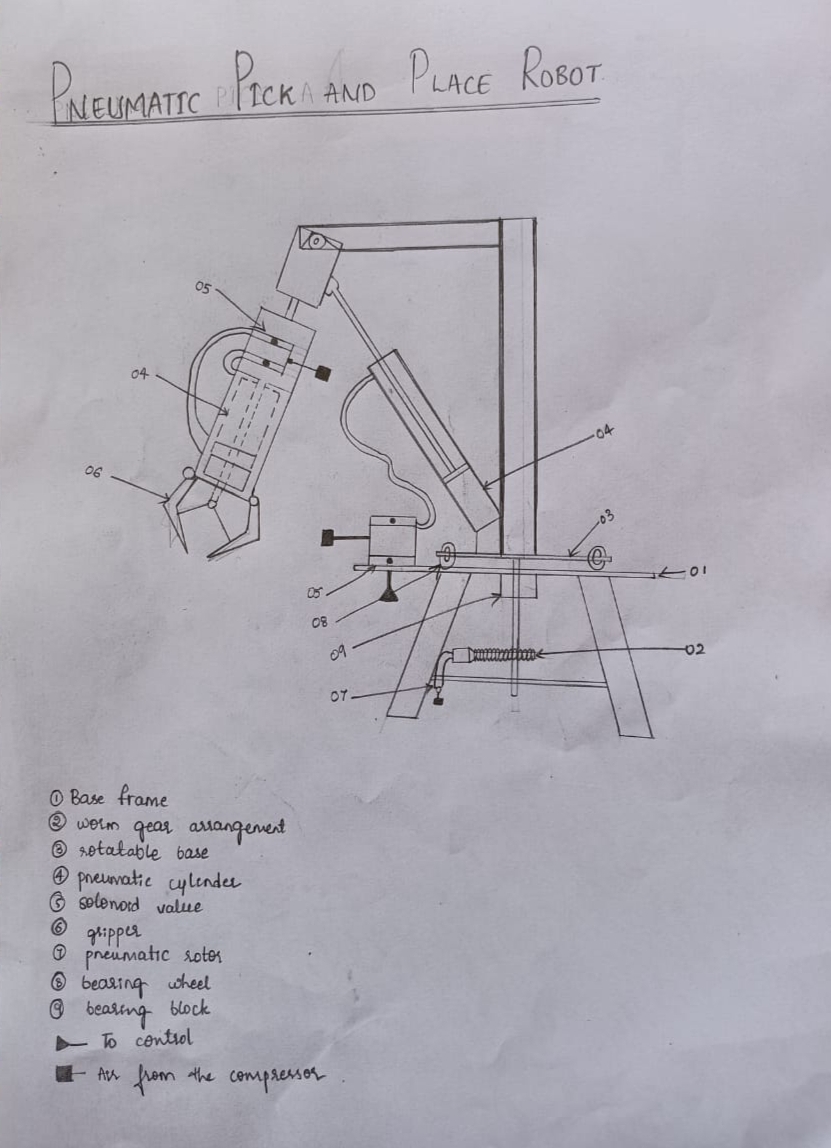 PNEUMATIC PICK AND PLACE ROBOT
05
04
06
04
03
01
05
08
09
02
07
① Base frame
② worm gear arrangement
③ rotatable base
④ pneumatic cylender
⑤ solenoid value
⑥ gripper
⑦ pneumatic rotor
⑧ bearing wheel
⑨ bearing block
To control
Air from the compressor